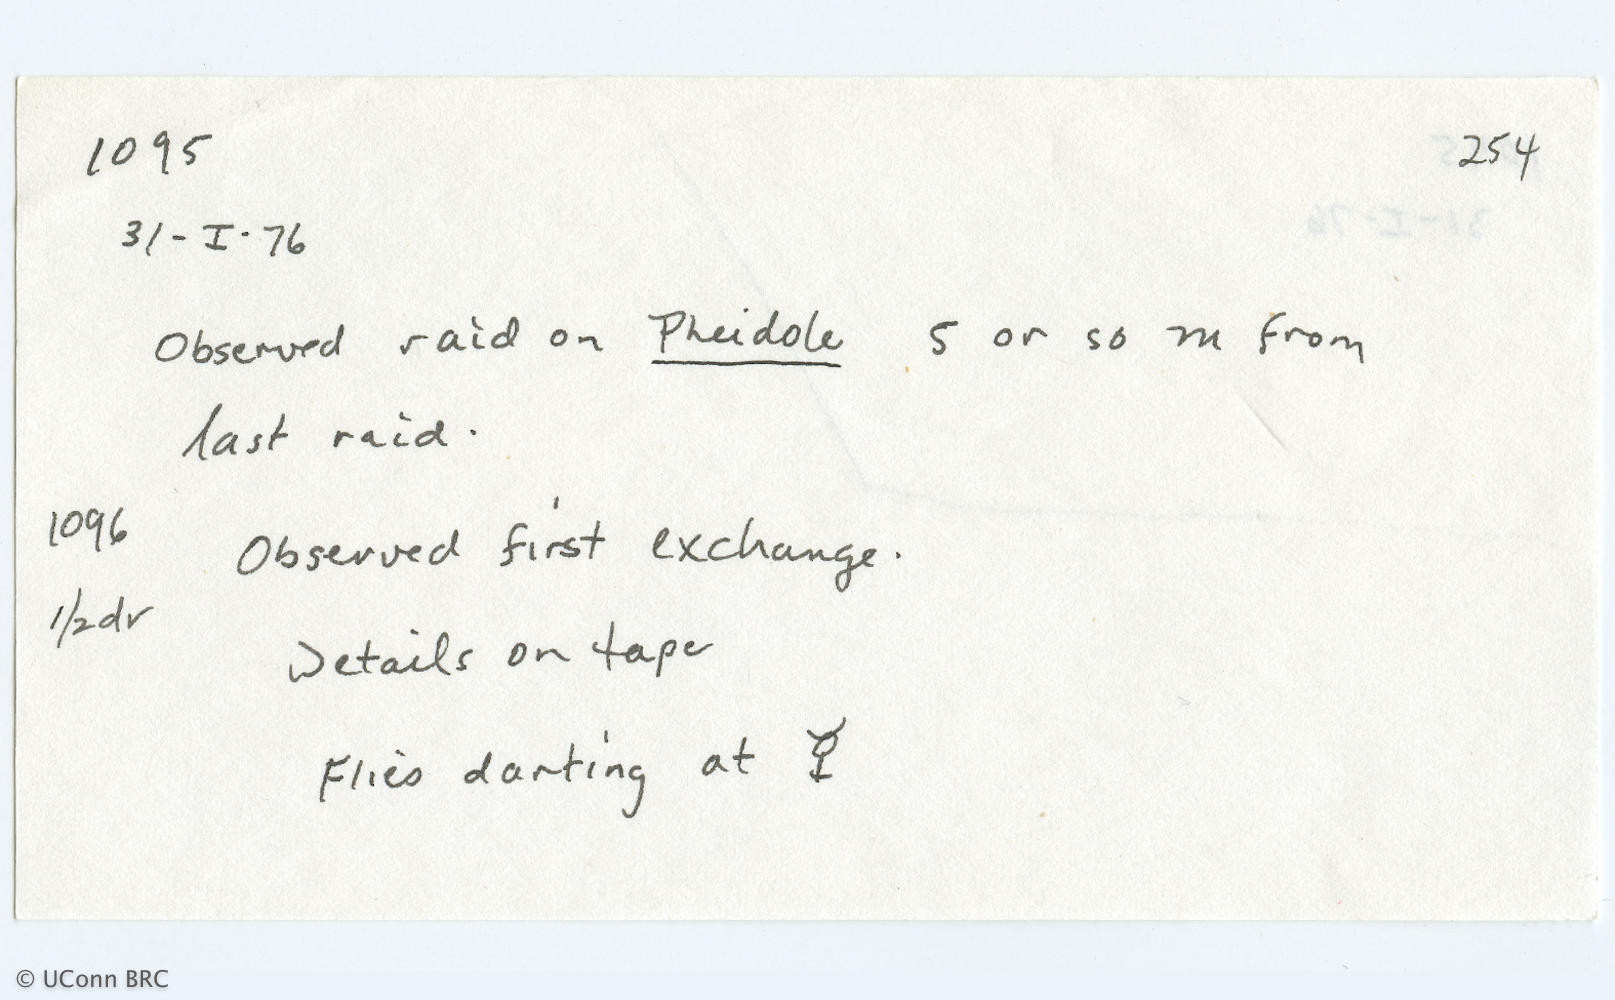 1095 254
31-I-76
Observed raid on Pheidole 5 or so m from
last raid.
1096 Observed first exchange.
1/2dr
Details on tape
Flies darting at ☿
© UConn BRC